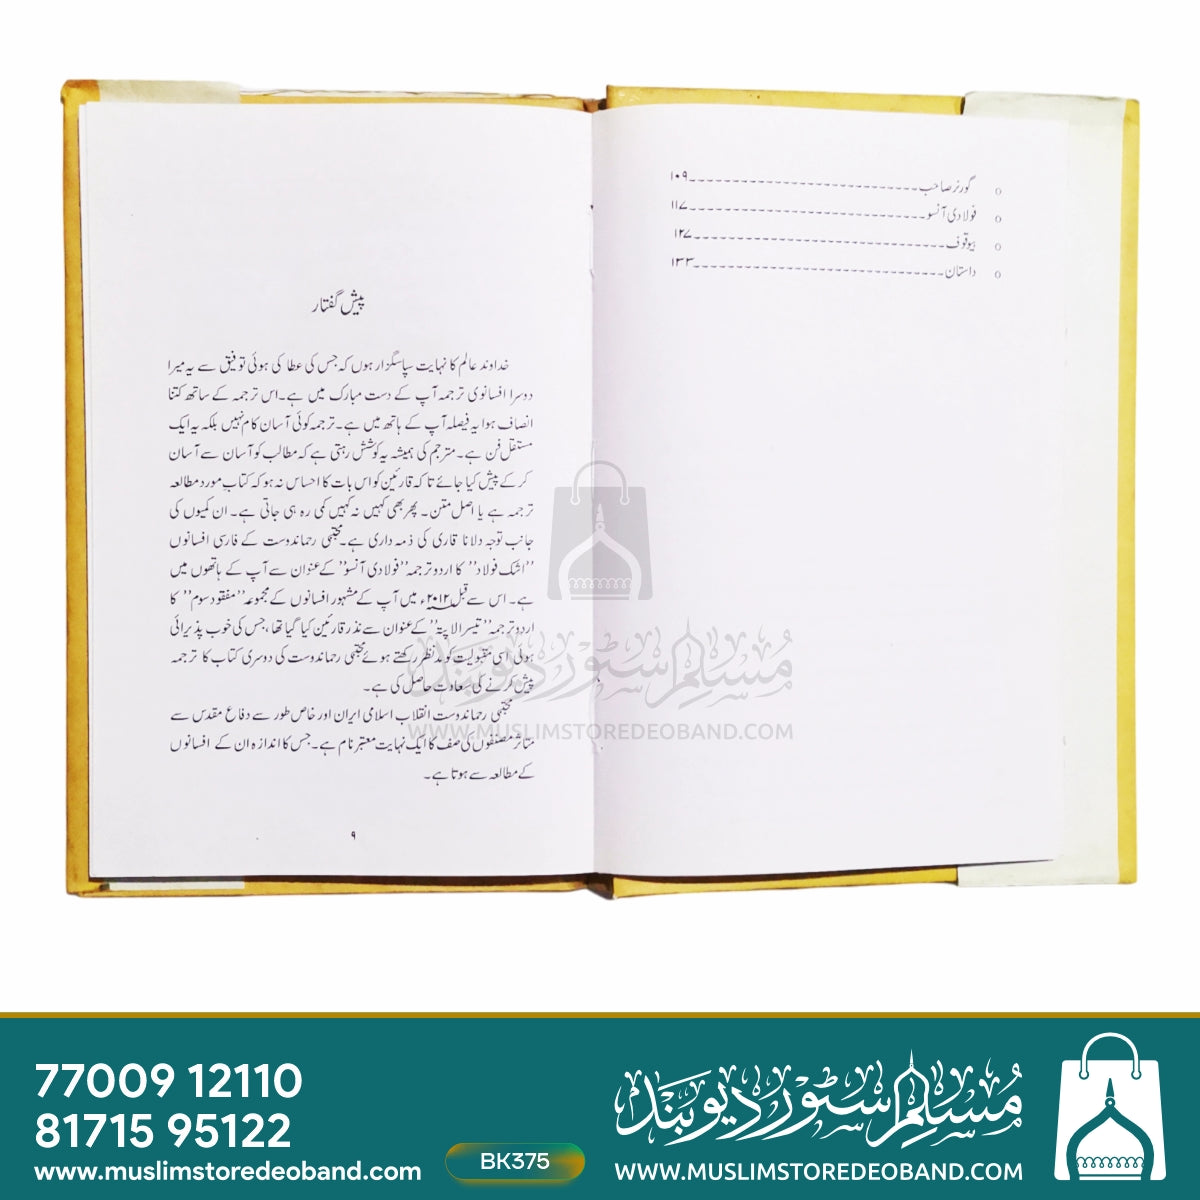 o گورنر صاحب---------------------------۱۰۹
o فولادی آنسو---------------------------۱۱۷
o بیوقوف---------------------------۱۲۷
o داستان---------------------------۱۳۳
پیش گفتار
خداوند عالم کا نہایت سپاسگزار ہوں کہ جس کی عطا کی ہوئی توفیق سے یہ میرا
دوسرا افسانوی ترجمہ آپ کے دست مبارک میں ہے۔اس ترجمہ کے ساتھ کتنا
انصاف ہوا یہ فیصلہ آپ کے ہاتھ میں ہے۔ترجمہ کوئی آسان کام نہیں بلکہ یہ ایک
مستقل فن ہے۔مترجم کی ہمیشہ یہ کوشش رہتی ہے کہ مطالب کو آسان سے آسان
کر کے پیش کیا جائے تاکہ قارئین کو اس بات کا احساس نہ ہو کہ کتاب مورد مطالعہ
ترجمہ ہے یا اصل متن۔ پھر بھی کہیں نہ کہیں کمی رہ ہی جاتی ہے۔ ان کمیوں کی
جانب توجہ دلانا قاری کی ذمہ داری ہے۔مجتبٰی رحماندوست کے فارسی افسانوں
"اشک فولاد" کا اردو ترجمہ "فولادی آنسو" کے عنوان سے آپ کے ہاتھوں میں
ہے۔ اس سے قبل ۲۰۱۲ء میں آپ کے مشہور افسانوں کے مجموعہ "مفقود سوم" کا
اردو ترجمہ "تیسرا لاپتہ" کے عنوان سے نذر قارئین کیا گیا تھا، جس کی خوب پذیرائی
ہوئی اسی مقبولیت کو مدنظر رکھتے ہوئے مجتبٰی رحماندوست کی دوسری کتاب کا ترجمہ
پیش کرنے کی سعادت حاصل کی ہے۔
مجتبٰی رحماندوست انقلاب اسلامی ایران اور خاص طور سے دفاع مقدس سے
متاثر مصنفوں کی صف کا ایک نہایت معتبر نام ہے۔جس کا اندازہ ان کے افسانوں
کے مطالعہ سے ہوتا ہے۔
۹
مسلم سٹور دیوبند
WWW.MUSLIMSTOREDEOBAND.COM
77009 12110
81715 95122
www.muslimstoredeoband.com
BK375
مسلم سٹور دیوبند
WWW.MUSLIMSTOREDEOBAND.COM